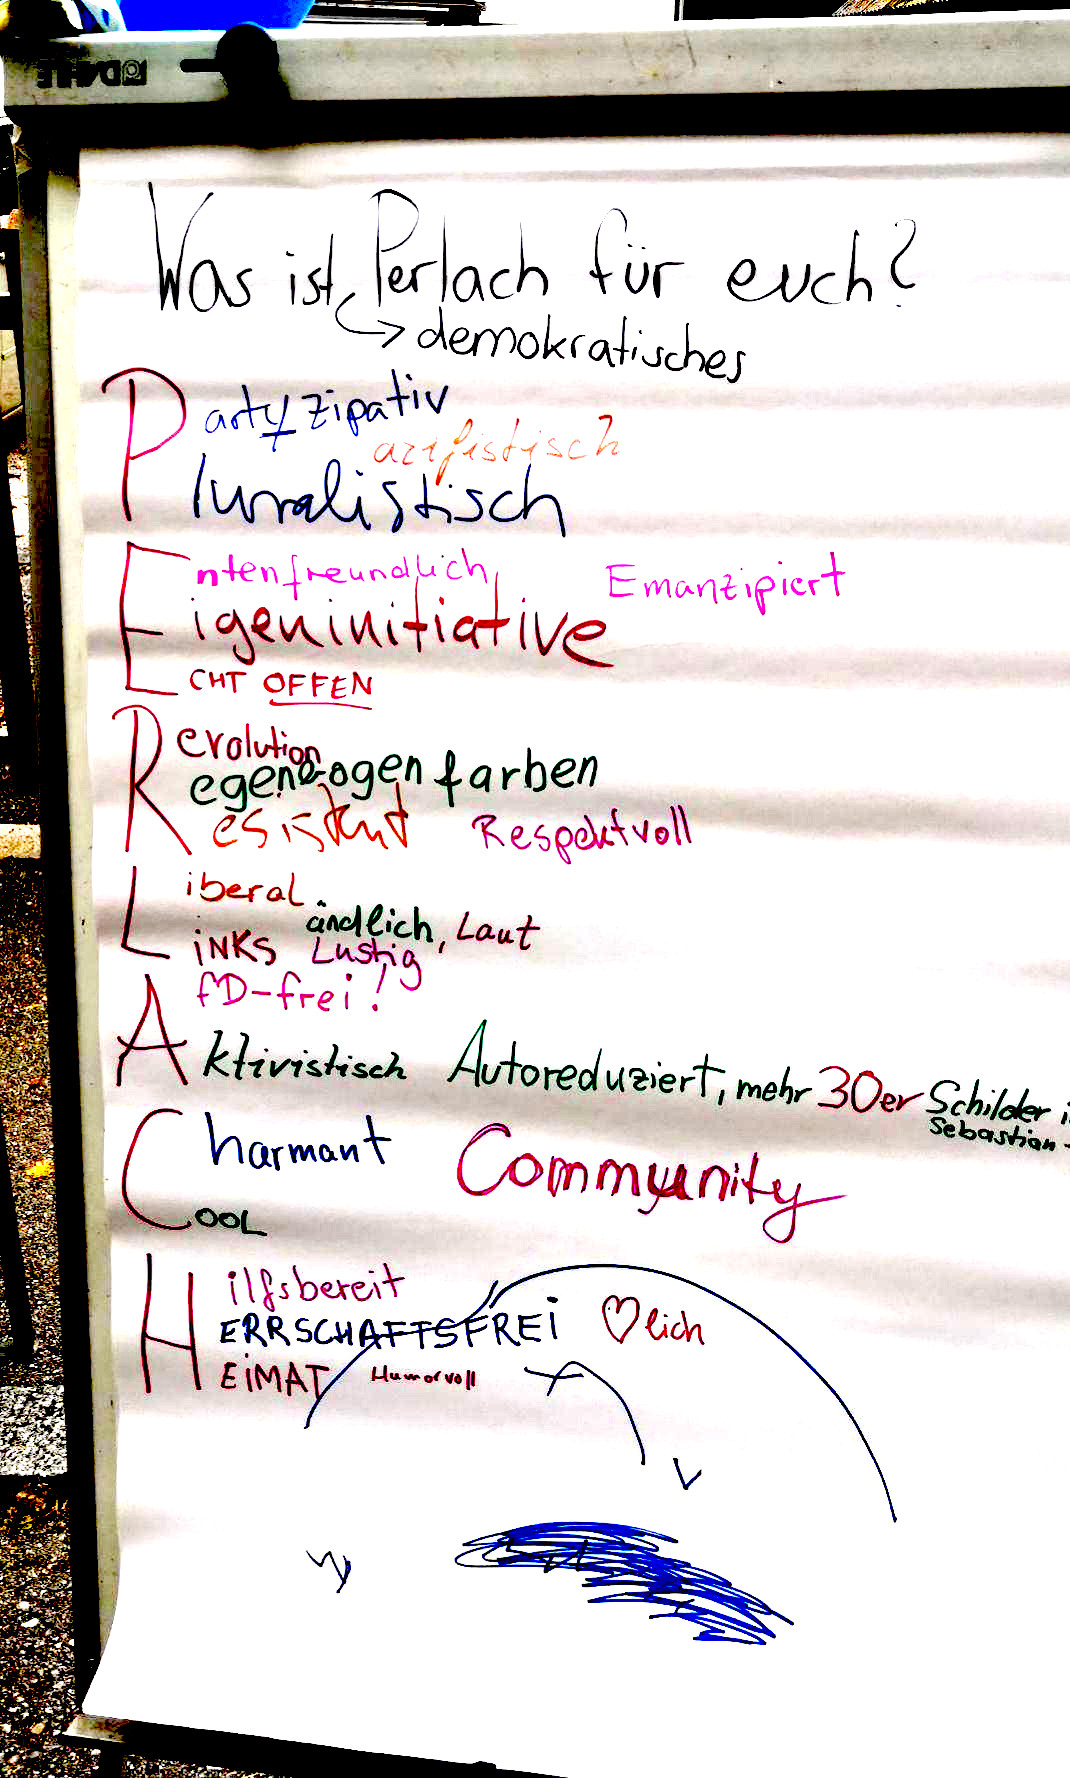 DAHLE
Was ist Perlach für euch?
demokratisches
Partyzipativ
azifistisch
luralistisch
Entenfreundlich Emanzipiert
igeninitiative
CHT OFFEN
Revolution
egenbogenfarben
esistent Respektvoll
Liberal
ändlich, Laut
iNKS Lustig
AfD-frei!
ktivistisch Autoreduziert, mehr 30er Schilder i
Sebastian-
Charmant Community
OOL
Hilfsbereit
ERRSCHAFTSFREi ♡lich
EiMAT Humorvoll